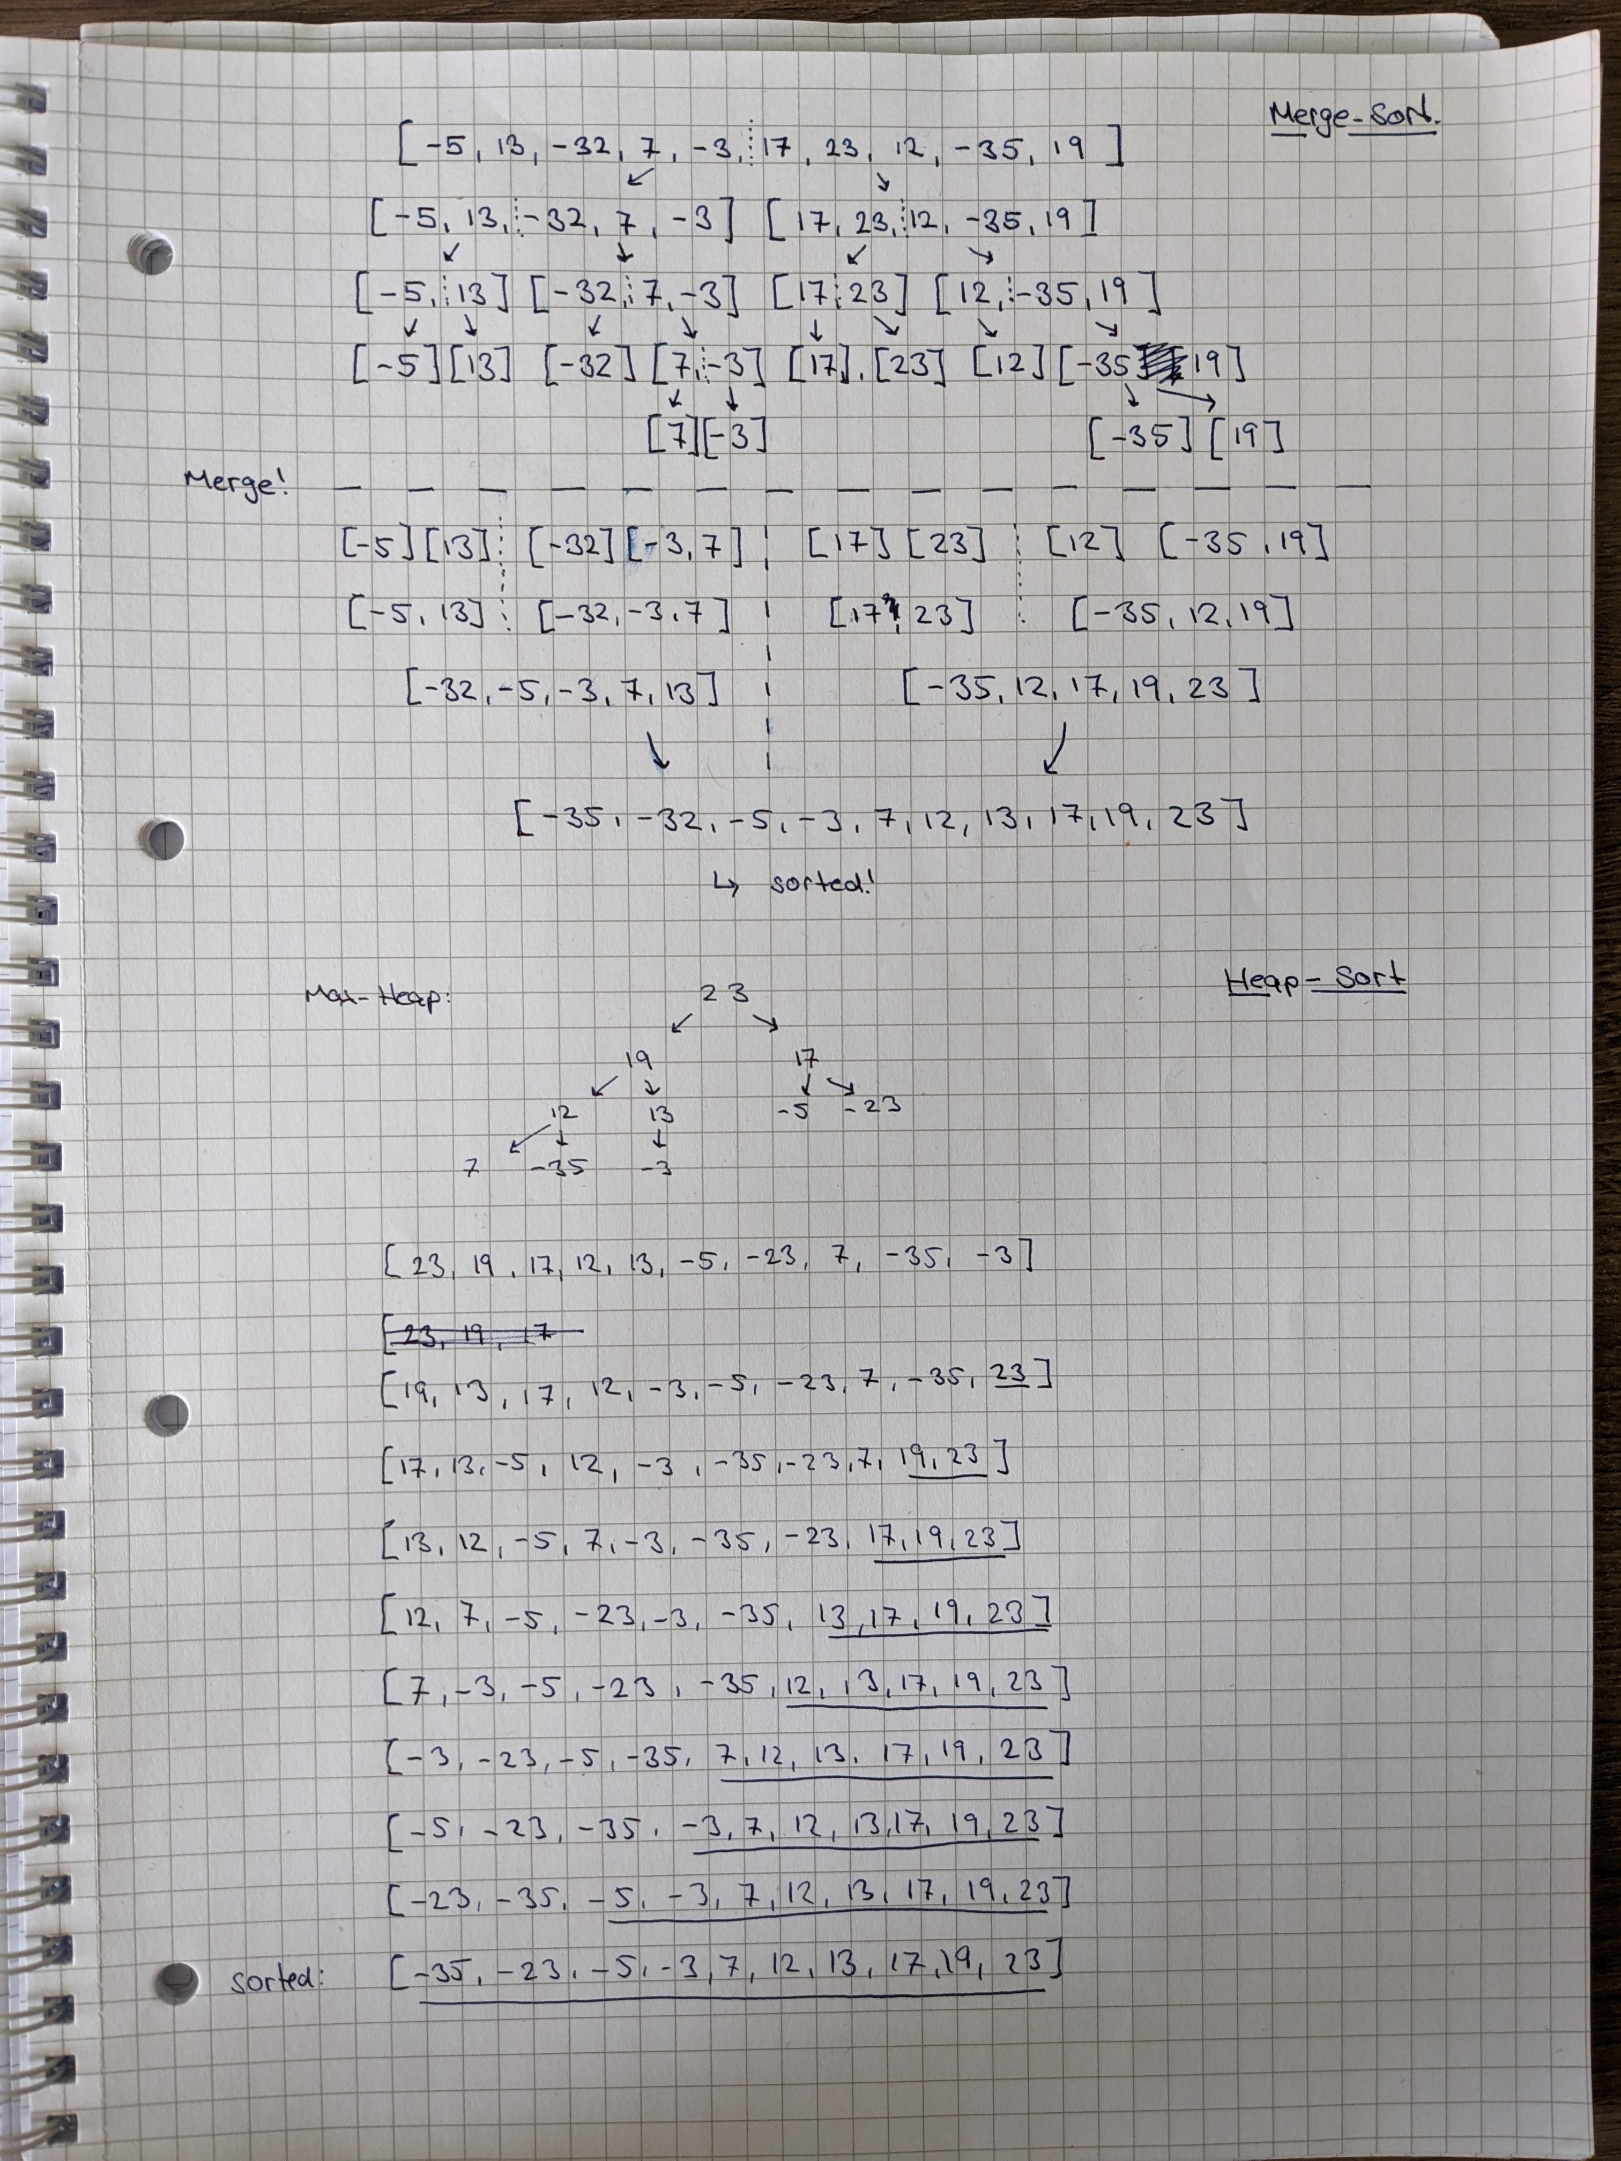 Merge-Sort.
[ -5, 13, -32, 7, -3, 17, 23, 12, -35, 19 ]
[ -5, 13, -32, 7, -3 ] [ 17, 23, 12, -35, 19 ]
[ -5, 13 ] [ -32, 7, -3 ] [ 17, 23 ] [ 12, -35, 19 ]
[ -5 ] [ 13 ] [ -32 ] [ 7, -3 ] [ 17 ], [ 23 ] [ 12 ] [ -35 19 ]
[ 7 ] [ -3 ] [ -35 ] [ 19 ]
Merge!
[-5] [13] [-32] [-3, 7] [17] [23] [12] [-35, 19]
[-5, 13] [-32, -3, 7] [17, 23] [-35, 12, 19]
[-32, -5, -3, 7, 13] [-35, 12, 17, 19, 23 ]
[ -35, -32, -5, -3, 7, 12, 13, 17, 19, 23 ]
↳ sorted!
Heap-Sort
Max-Heap: 23
19 17
12 13 -5 -23
7 -35 -3
[ 23, 19, 17, 12, 13, -5, -23, 7, -35, -3 ]
[ 23, 19, 17
[ 19, 13, 17, 12, -3, -5, -23, 7, -35, 23 ]
[ 17, 13, -5, 12, -3, -35, -23, 7, 19, 23 ]
[ 13, 12, -5, 7, -3, -35, -23, 17, 19, 23 ]
[ 12, 7, -5, -23, -3, -35, 13, 17, 19, 23 ]
[ 7, -3, -5, -23, -35, 12, 13, 17, 19, 23 ]
[ -3, -23, -5, -35, 7, 12, 13, 17, 19, 23 ]
[ -5, -23, -35, -3, 7, 12, 13, 17, 19, 23 ]
[ -23, -35, -5, -3, 7, 12, 13, 17, 19, 23 ]
sorted: [ -35, -23, -5, -3, 7, 12, 13, 17, 19, 23 ]